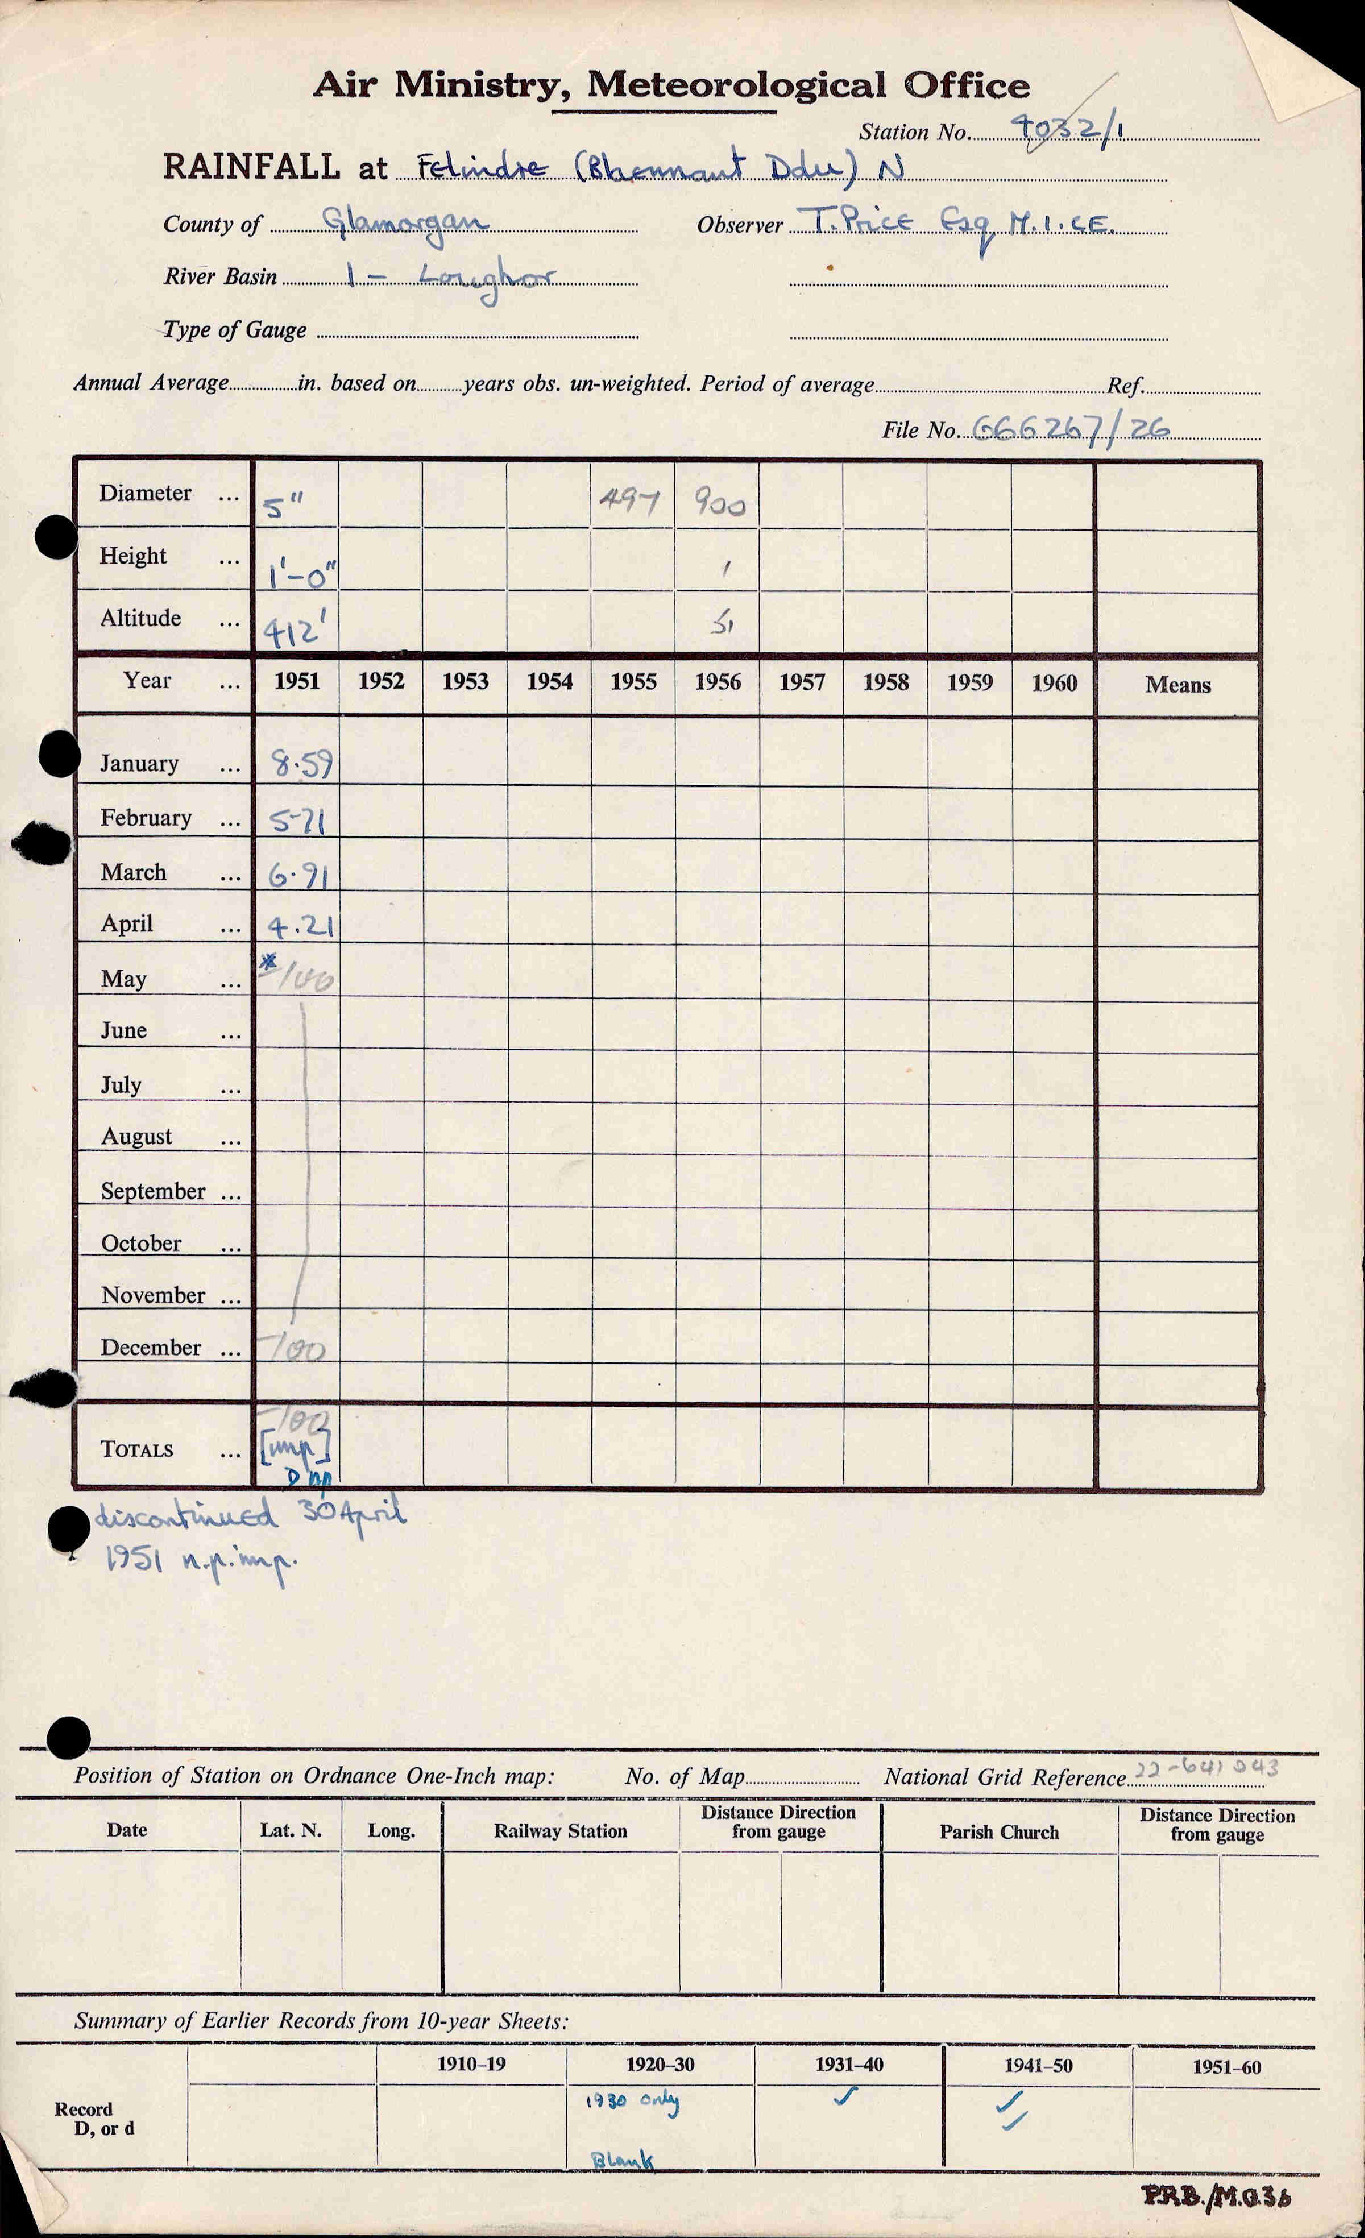 Air Ministry, Meteorological Office
Station No. 4032/1
RAINFALL at Felindre (Blaennant Ddu) N
County of Glamorgan Observer T. Price Esq M.I.C.E.
River Basin 1 - Loughor
Type of Gauge
Annual Average in. based on years obs. un-weighted. Period of average Ref.
File No. 666267/26
Diameter ... 5" 497 900
Height ... 1'-0" 1
Altitude ... 412' 51
Year ... 1951 1952 1953 1954 1955 1956 1957 1958 1959 1960 Means
January ... 8.59
February ... 5.71
March ... 6.91
April ... 4.21
May ... * -100
June ...
July ...
August ...
September ...
October ...
November ...
December ... -100
-100
TOTALS ... [imp]
discontinued 30 April
1951 n.p. imp.
Position of Station on Ordnance One-Inch map: No. of Map National Grid Reference 22-641043
Date Lat. N. Long. Railway Station Distance Direction from gauge Parish Church Distance Direction from gauge
Summary of Earlier Records from 10-year Sheets:
1910-19 1920-30 1931-40 1941-50 1951-60
Record 1930 only ✓ ✓
D, or d ✓
Blank
P.R.B./M.O.36